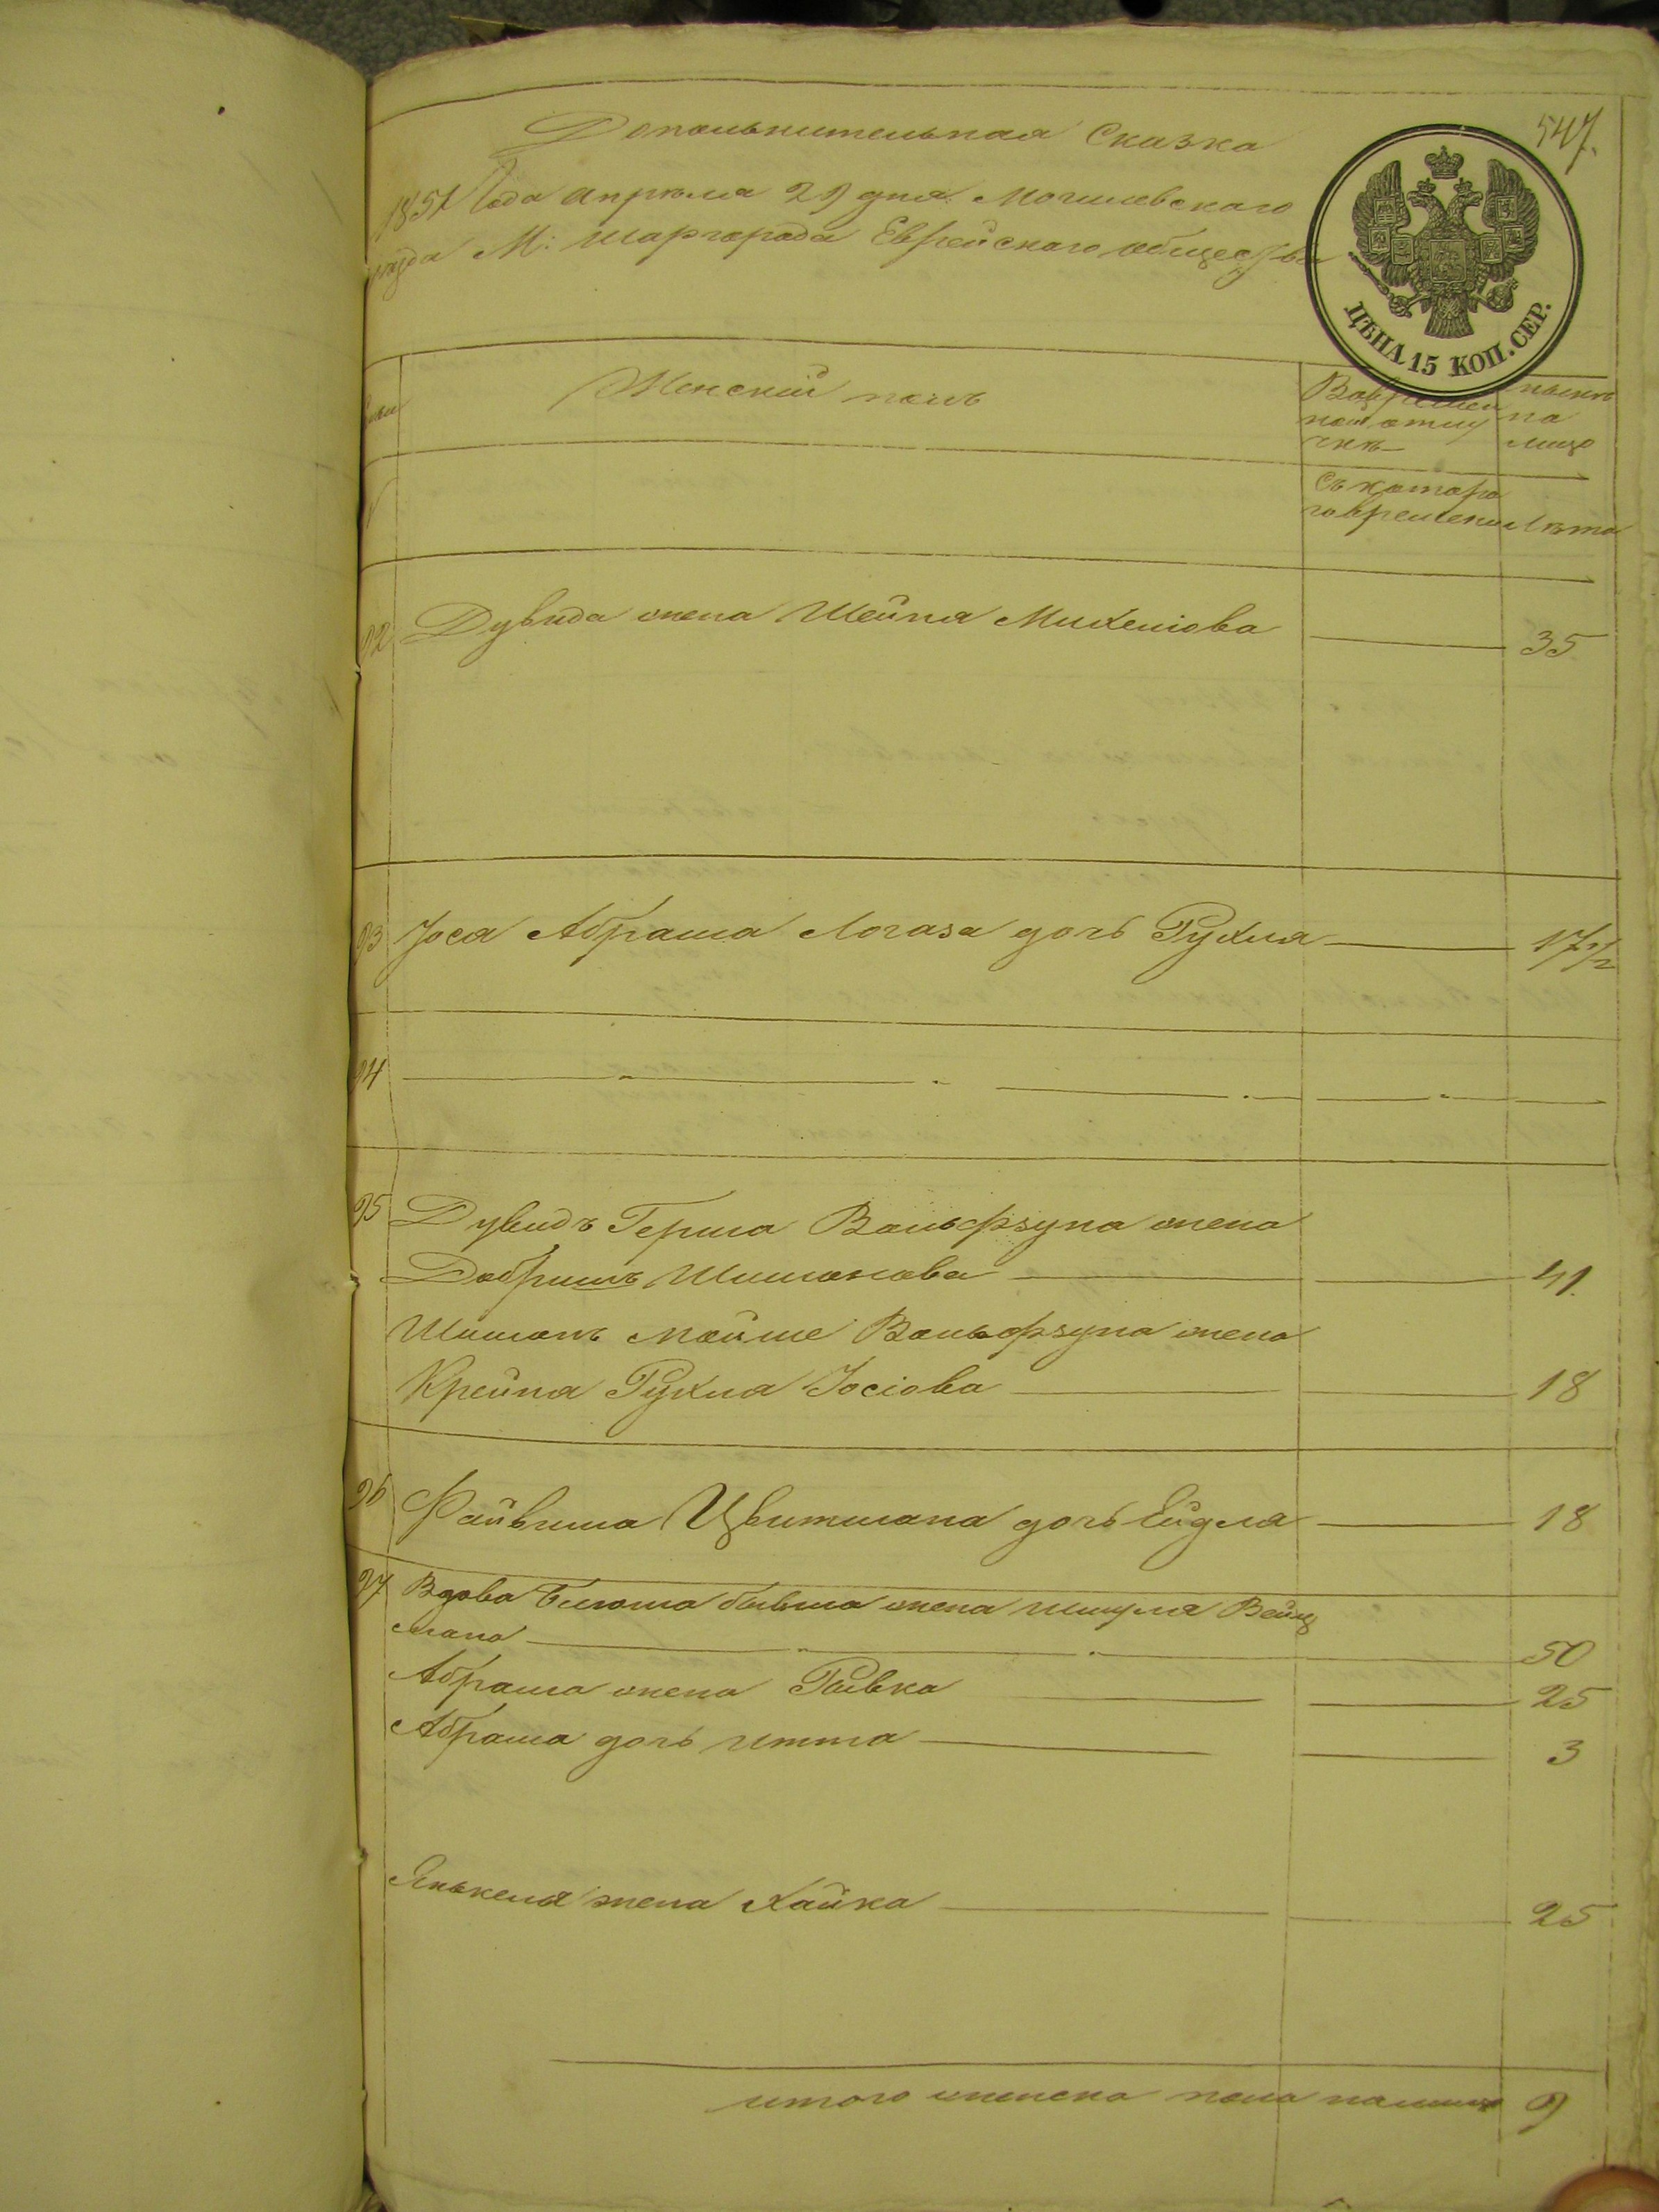 547.
Дополнительная Сказка
1851 Года Апреля 29 дня Могилевскаго
уезда М: Шаргорода Еврейскаго общества
ЦѢНА 15 КОП. СЕР.
Женский полъ
Во временной отлучкѣ
нынѣ на лицо
Съ котораго времени
Лѣта
92 Дувида жена Шейня Михелiова 35
93 Iося Абрама Логаза дочь Рухля 17 1/2
94
95 Дувидъ Герша Вольфзуна жена
Добришъ Шимонова 41.
Шимонъ Мойше Вольфзуна жена
Крейня Рухля Iосiова 18
96 Файвиша Цвитмана дочь Ейдля 18
97 Вдова бывша жена Шмуля Вейц
мана 50
Абрама жена Рывка 25
Абрама дочь Итта 3
Янькеля жена Хайка 25
итого женска пола налицо 9